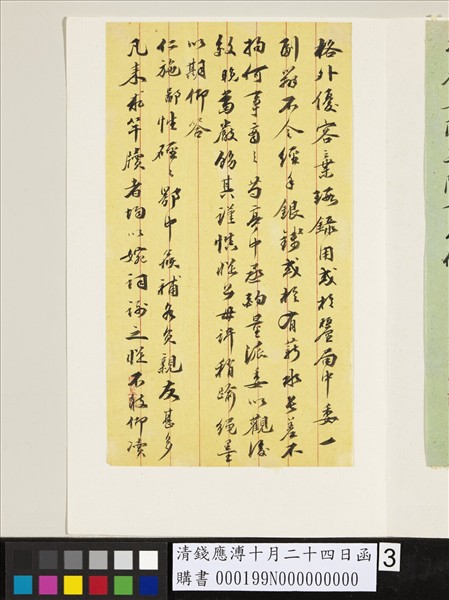 格外優容棄瑕錄用或於釐局中委一
副辦不令經手銀錢或於有薪水長差不
拘何事商之芍亭中丞酌量派委以觀後
效晚當嚴飭其謹慎從公毋許稍踰繩墨
以期仰答
仁施鄙性硜硜鄂中候補各員親友甚多
凡来求竿牘者均以婉詞謝之從不敢仰凟
清錢應溥十月二十四日函
購書 000199N000000000
3